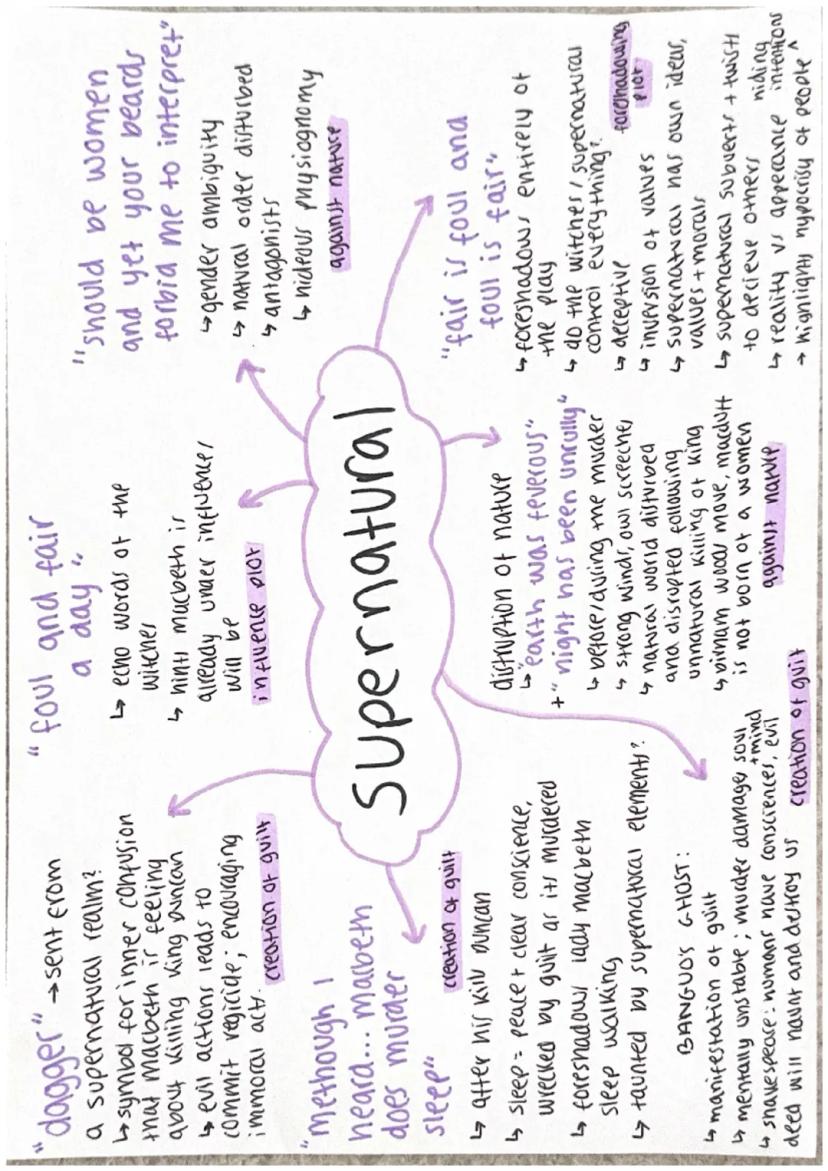 "dagger" → sent from
a supernatural realm?
↳ symbol for inner confusion
that macbeth is feeling
about killing king duncan
↳ evil actions leads to
commit regicide; encouraging
immoral act.
creation of guilt
"foul and fair
a day"
↳ echo words of the
witches
↳ hints macbeth is
already under influence/
will be
influence plot
"should be women
and yet your beards
forbid me to interpret"
→ gender ambiguity
↳ natural order disturbed
→ antagonists
↳ hideous physiognomy
against nature
Supernatural
"methough I
heard... macbeth
does murder
sleep"
creation of guilt
↳ after his kills duncan
↳ sleep = peace + clear conscience,
wrecked by guilt as its murdered
↳ foreshadows lady macbeth
sleep walking
↳ taunted by supernatural elements?
BANQUO'S GHOST:
↳ manifestation of guilt
↳ mentally unstable; murder damages soul
+ mind
↳ shakespeare: humans have consciences, evil
deed will haunt and destroy us
creation of guilt
disruption of nature
↳ "earth was feverous"
+ "night has been unrully"
↳ before/during the murder
↳ strong winds, owl screeches
↳ natural world disturbed
and disrupted following
unnatural killing of king
↳ birnam woods move, macduff
is not born of a women
against nature
"fair is foul and
foul is fair"
↳ foreshadows entirely of
the play
↳ do the witches/supernatural
control everything?
↳ deceptive
foreshadowing
plot
↳ inversion of values
↳ supernatural has own ideas,
values + morals
↳ supernatural subverts + twists
to decieve others
↳ reality vs appearance
hiding
intentions
→ highlights hypocrisy of people ^